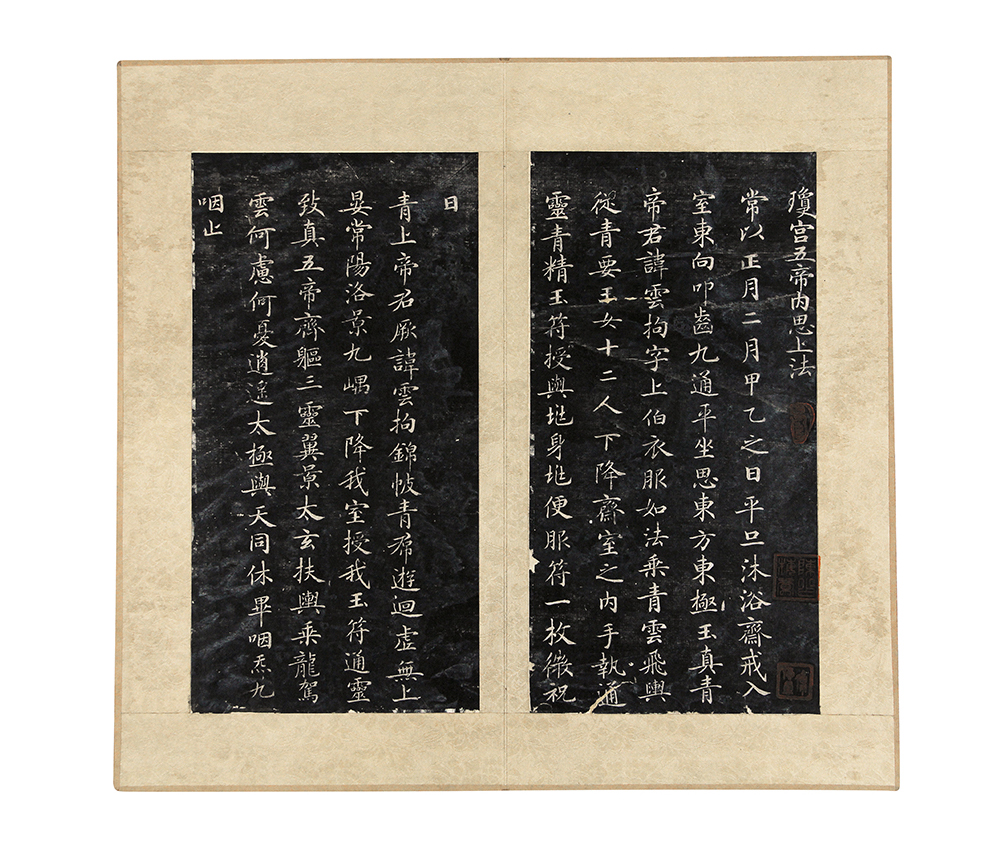 瓊宮五帝內思上法
常以正月二月甲乙之日平旦沐浴齋戒入
室東向叩齒九通平坐思東方東極玉真青
帝君諱雲拘字上伯衣服如法乘青雲飛輿
從青要玉女十二人下降齋室之內手執通
靈青精玉符授與地身地便服符一枚微祝
曰
青上帝君厥諱雲拘錦帔青帬遊迴虛無上
晏常陽洛景九嵎下降我室授我玉符通靈
致真五帝齊軀三靈翼景太玄扶輿乘龍駕
雲何慮何憂逍遙太極與天同休畢咽炁九
咽止